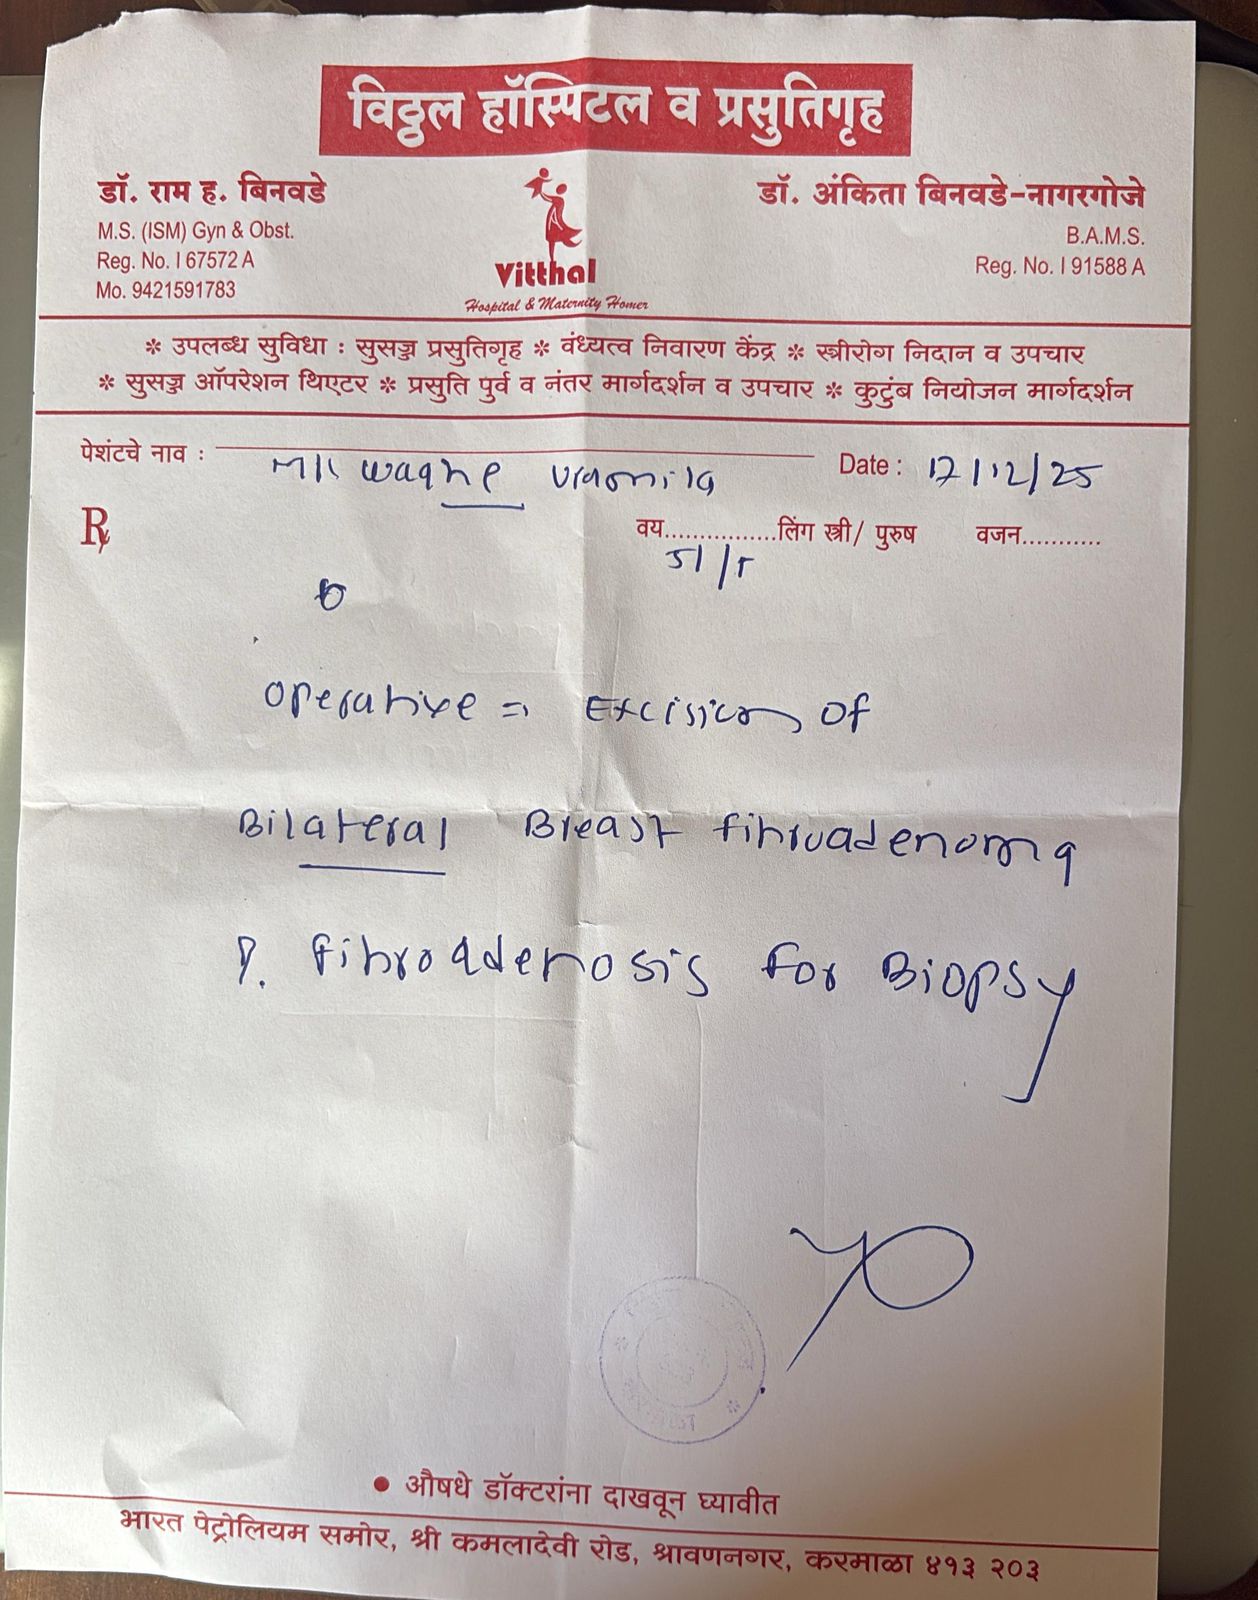 विठ्ठल हॉस्पिटल व प्रसुतिगृह
डॉ. राम ह. बिनवडे
M.S. (ISM) Gyn & Obst.
Reg. No. I 67572 A
Mo. 9421591783
Vitthal
Hospital & Maternity Homer
डॉ. अंकिता बिनवडे-नागरगोजे
B.A.M.S.
Reg. No. I 91588 A
* उपलब्ध सुविधा : सुसज्ज प्रसुतिगृह * वंध्यत्व निवारण केंद्र * स्त्रीरोग निदान व उपचार
* सुसज्ज ऑपरेशन थिएटर * प्रसुति पुर्व व नंतर मार्गदर्शन व उपचार * कुटुंब नियोजन मार्गदर्शन
पेशंटचे नाव : Waghe Date : 17/12/25
Rx वय................लिंग स्त्री/ पुरुष वजन...........
51/F
operative => Excision of
Bilateral Breast fibroadenoma
?. fibroadenosis for Biopsy
• औषधे डॉक्टरांना दाखवून घ्यावीत
भारत पेट्रोलियम समोर, श्री कमलादेवी रोड, श्रावणनगर, करमाळा ४१३ २०३